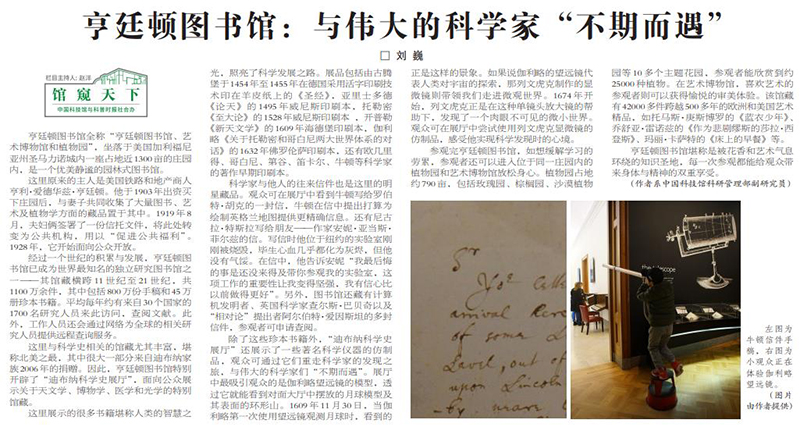 亨廷顿图书馆：与伟大的科学家“不期而遇”
□ 刘 巍
栏目主持人：赵洋
馆窥天下
中国科技馆与科普时报社合办
亨廷顿图书馆全称“亨廷顿图书馆、艺
术博物馆和植物园”，坐落于美国加利福尼
亚州圣马力诺城内一座占地近1300亩的庄园
内，是一个优美静谧的园林式图书馆。
这里原来的主人是美国铁路和地产商人
亨利·爱德华兹·亨廷顿。他于1903年出资买
下庄园后，与妻子共同收集了大量图书、艺
术及植物学方面的藏品置于其中。1919年8
月，夫妇俩签署了一份信托文件，将此处转
变为公共机构，用以“促进公共福利”。
1928年，它开始面向公众开放。
经过一个世纪的积累与发展，亨廷顿图
书馆已成为世界最知名的独立研究图书馆之
一——其馆藏横跨11世纪至21世纪，共
1100万余件，其中包括800万份手稿和45万
册珍本书籍。平均每年约有来自30个国家的
1700名研究人员来此访问，查阅文献。此
外，工作人员还会通过网络为全球的相关研
究人员提供远程查询服务。
这里与科学史相关的馆藏尤其丰富，堪
称北美之最，其中很大一部分来自迪布纳家
族2006年的捐赠。因此，亨廷顿图书馆特别
开辟了“迪布纳科学史展厅”，面向公众展
示关于天文学、博物学、医学和光学的特别
馆藏。
这里展示的很多书籍堪称人类的智慧之
光，照亮了科学发展之路。展品包括由古腾
堡于1454年至1455年在德国采用活字印刷技
术印在羊皮纸上的《圣经》，亚里士多德
《论天》的1495年威尼斯印刷本，托勒密
《至大论》的1528年威尼斯印刷本，开普勒
《新天文学》的1609年海德堡印刷本，伽利
略《关于托勒密和哥白尼两大世界体系的对
话》的1632年佛罗伦萨印刷本，还有欧几里
得、哥白尼、第谷、笛卡尔、牛顿等科学家
的著作早期印刷本。
科学家与他人的往来信件也是这里的明
星藏品。观众可在展厅中看到牛顿写给罗伯
特·胡克的一封信，牛顿在信中提出打算为
绘制英格兰地图提供更精确信息。还有尼古
拉·特斯拉写给朋友——作家安妮·亚当斯·
菲尔兹的信。写信时他位于纽约的实验室刚
刚被烧毁，毕生心血几乎都化为灰烬，但他
没有气馁。在信中，他告诉安妮“我最后悔
的事是还没来得及带你参观我的实验室，这
项工作的重要性让我变得坚强，我有信心比
以前做得更好”。另外，图书馆还藏有计算
机发明者、英国科学家查尔斯·巴贝奇以及
“相对论”提出者阿尔伯特·爱因斯坦的多封
信件，参观者可申请查阅。
除了这些珍本书籍外，“迪布纳科学史
展厅”还展示了一些著名科学仪器的仿制
品，观众可通过它们重走科学家的发现之
旅，与伟大的科学家们“不期而遇”。展厅
中最吸引观众的是伽利略望远镜的模型，透
过它就能看到对面大厅中摆放的月球模型及
其表面的环形山。1609年11月30日，当伽
利略第一次使用望远镜观测月球时，看到的
正是这样的景象。如果说伽利略的望远镜代
表人类对宇宙的探索，那列文虎克制作的显
微镜则带领我们走进微观世界。1674年开
始，列文虎克正是在这种单镜头放大镜的帮
助下，发现了一个肉眼不可见的微小世界。
观众可在展厅中尝试使用列文虎克显微镜的
仿制品，感受他实现科学发现时的心境。
参观完亨廷顿图书馆，如想缓解学习的
劳累，参观者还可以进入位于同一庄园内的
植物园和艺术博物馆放松身心。植物园占地
约790亩，包括玫瑰园、棕榈园、沙漠植物
园等10多个主题花园，参观者能欣赏到约
25000种植物。在艺术博物馆，喜欢艺术的
参观者则可以获得愉悦的审美体验。该馆藏
有42000多件跨越500多年的欧洲和美国艺术
精品，如托马斯·庚斯博罗的《蓝衣少年》、
乔舒亚·雷诺兹的《作为悲剧缪斯的莎拉·西
登斯》、玛丽·卡萨特的《床上的早餐》等。
亨廷顿图书馆堪称是被花香和艺术气息
环绕的知识圣地，每一次参观都能给观众带
来身体与精神的双重享受。
（作者系中国科技馆科研管理部副研究员）
左图为
牛顿信件手
稿，右图为
小观众正在
体验伽利略
望远镜。
（图片
由作者提供）